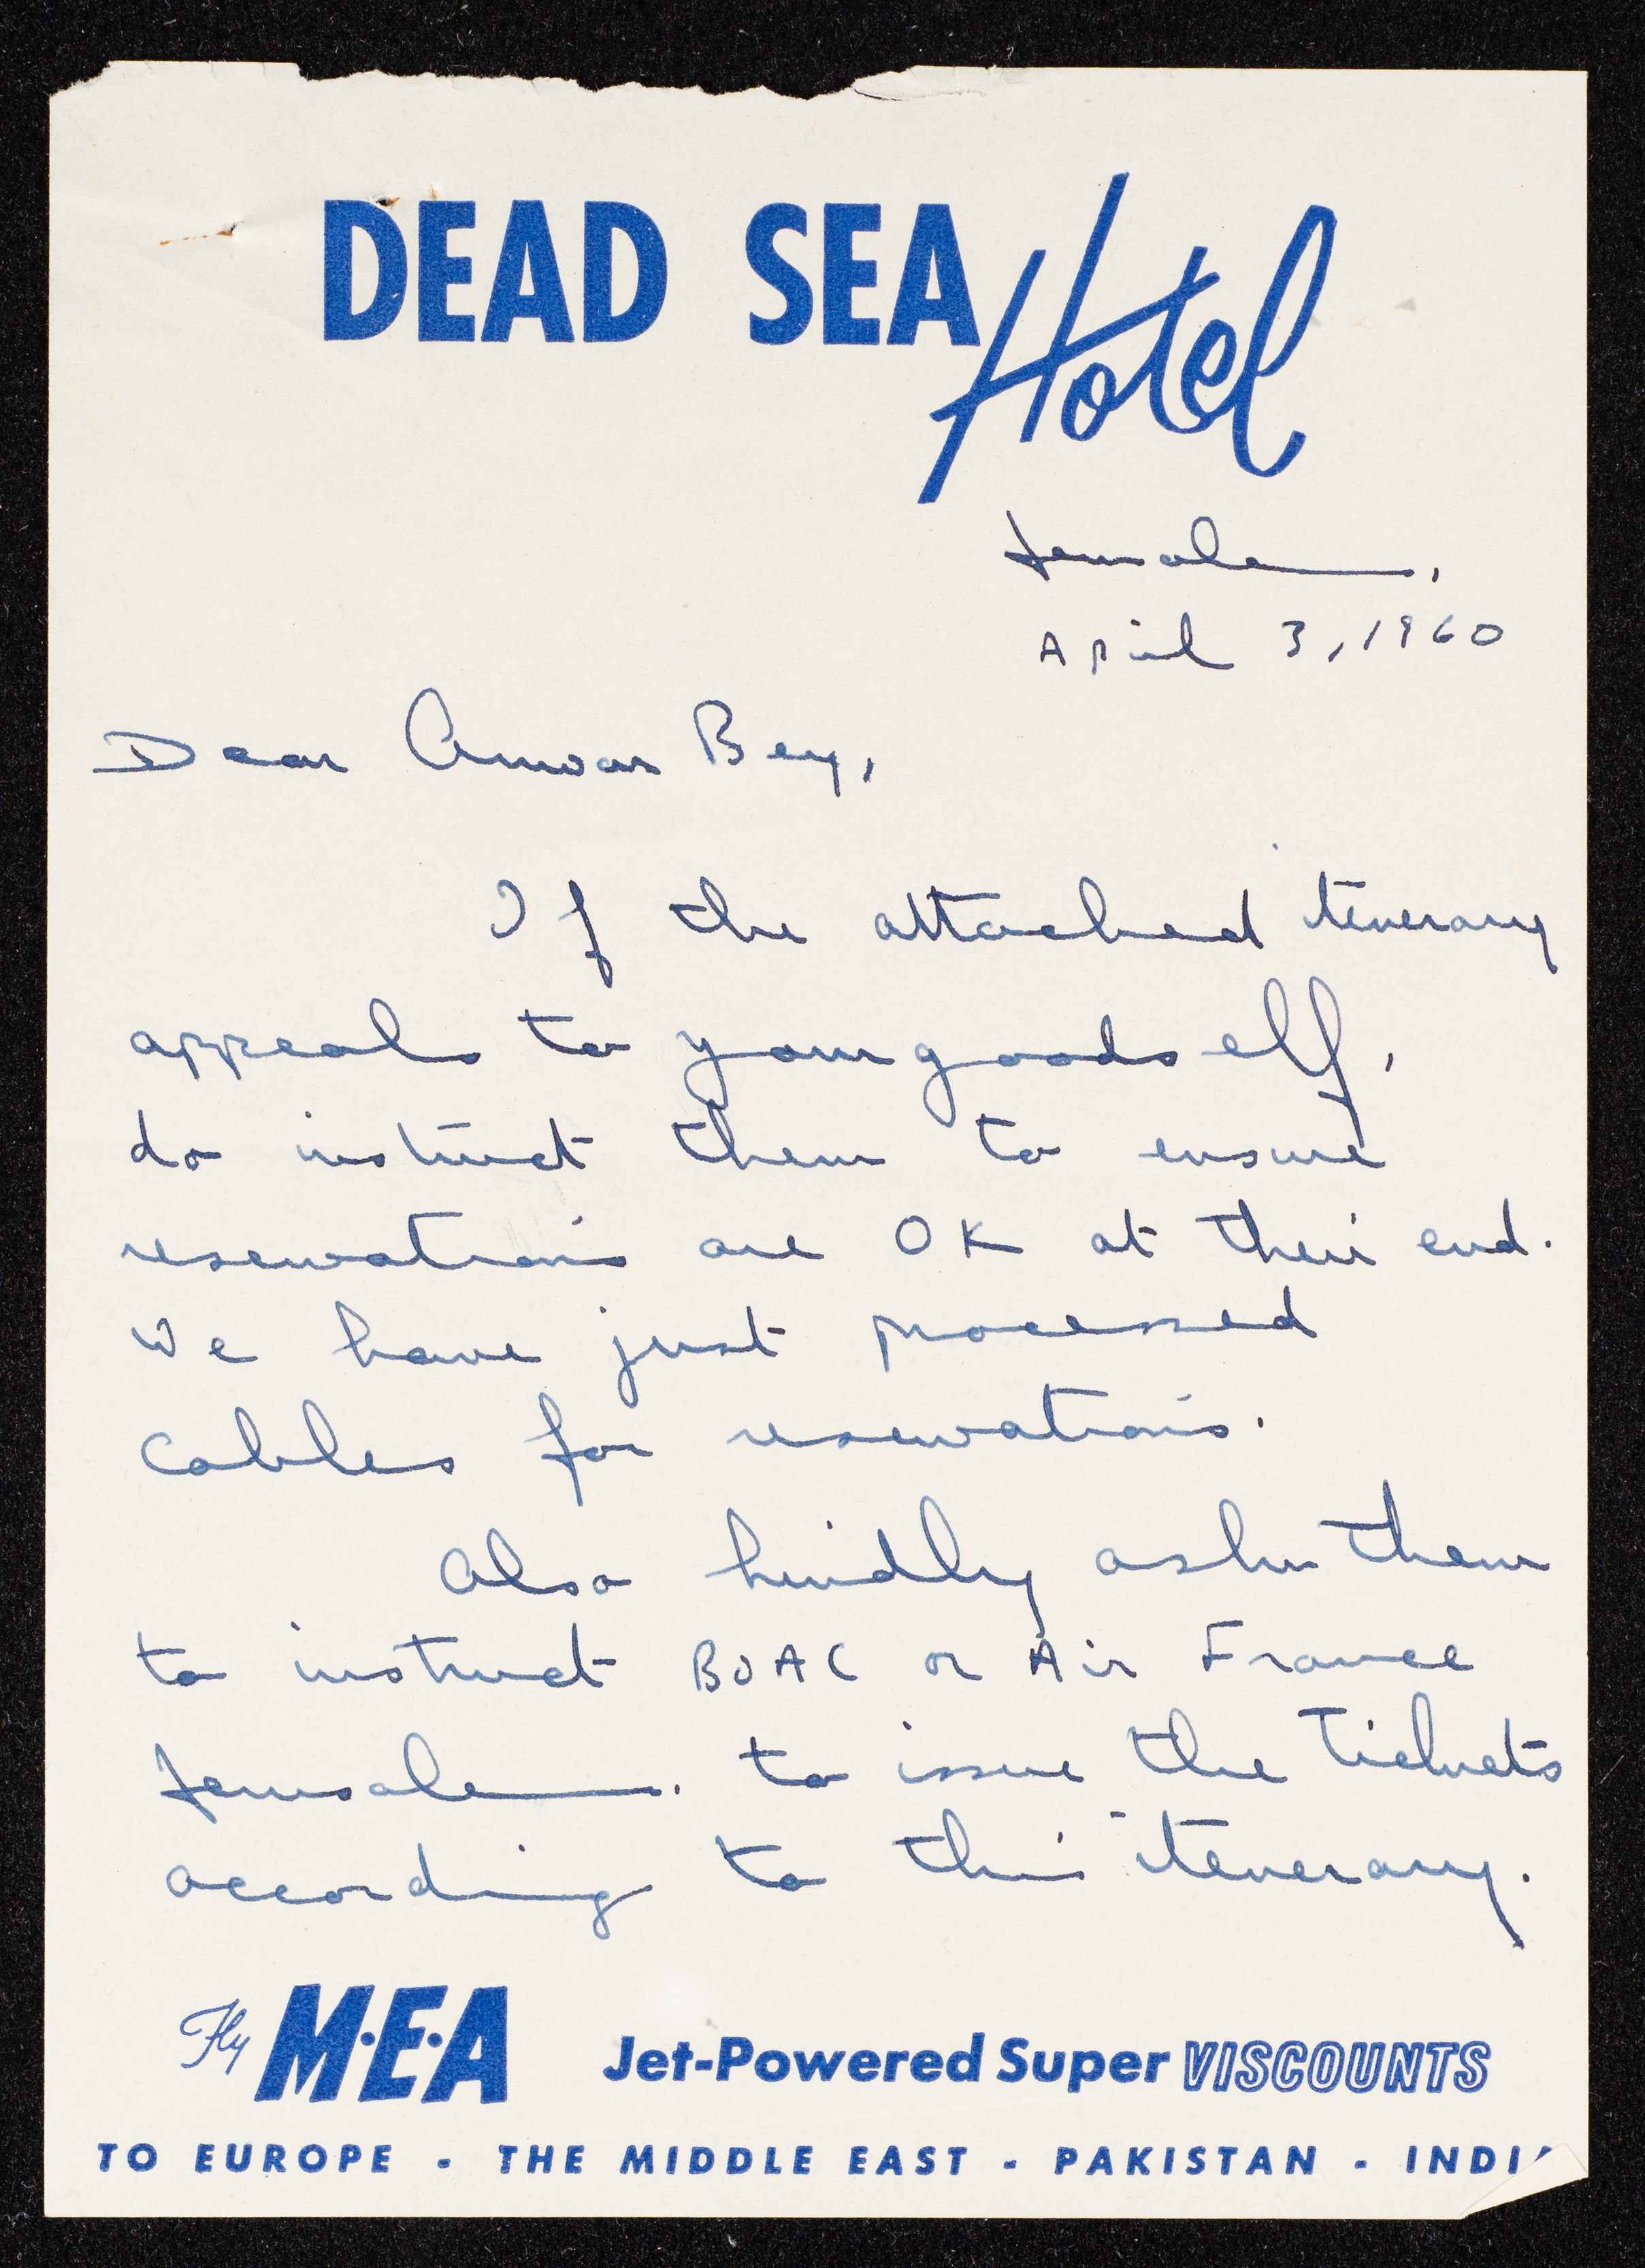 DEAD SEA Hotel
Jerusalem,
April 3, 1960
Dear Anwar Bey,
If the attached itenerary
appeals to your goodself,
do instruct them to ensure
reservations are OK at their end.
We have just processed
cables for reservations.
Also kindly ask them
to instruct BOAC or Air France
Jerusalem. to issue the Tickets
according to this itenerary.
Fly M·E·A Jet-Powered Super VISCOUNTS
TO EUROPE - THE MIDDLE EAST - PAKISTAN - INDI